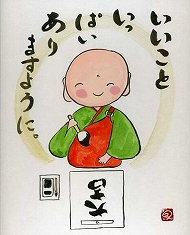 いいこと
いっ
ぱい
あり
ますように。